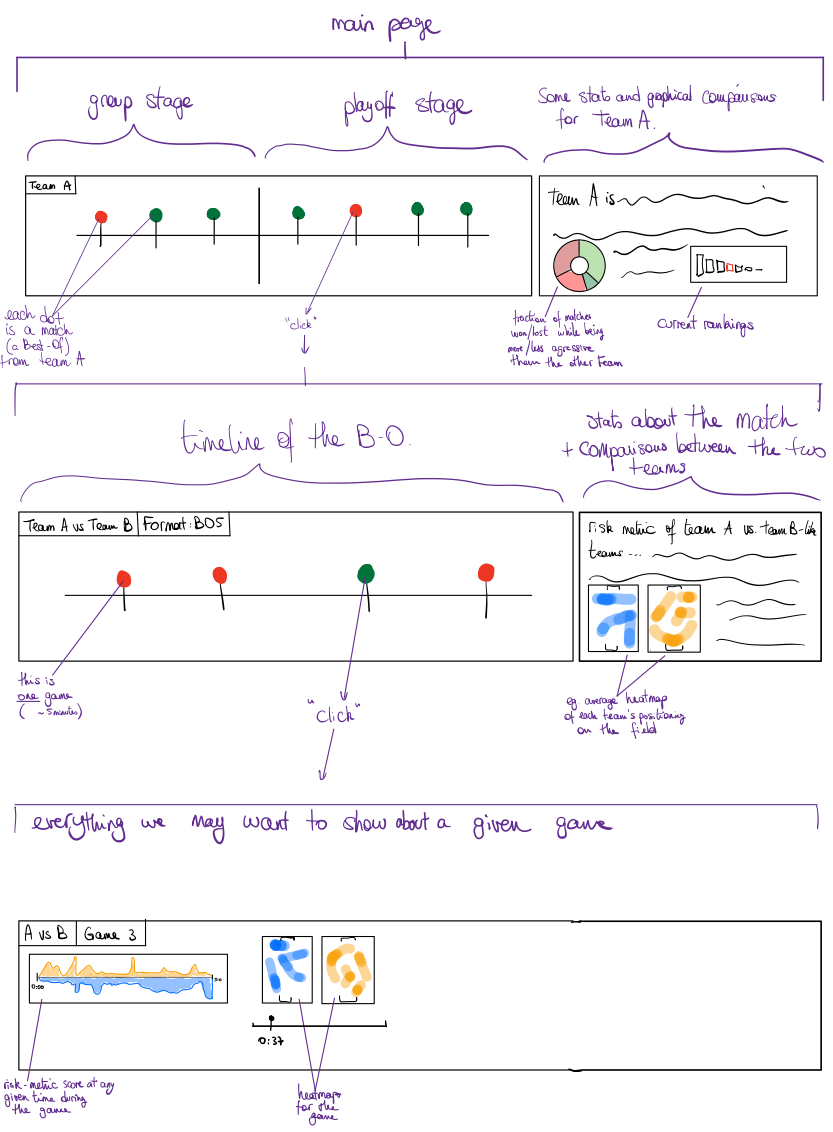 main page
group stage
playoff stage
Some stats and graphical comparisons
for Team A.
Team A
team A is
each dot
is a match
(a Best-Of)
from team A
"click"
fraction of matches
won/lost while being
more/less agressive
them the other Team
current rankings
timeline of the B-O.
stats about the match
+ comparisons between the two
teams
Team A vs Team B
Format: BO5
risk metric of team A vs. team B-like
teams ...
this is
one game
( ~5 minutes)
"click"
eg. average heatmap
of each team's positioning
on the field
everything we may want to show about a given game
A vs B
Game 3
0:00
0:37
risk-metric score at any
given time during
the game
heatmaps
for the
game